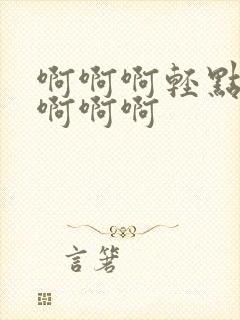 啊啊啊轻點
啊啊啊
言箸